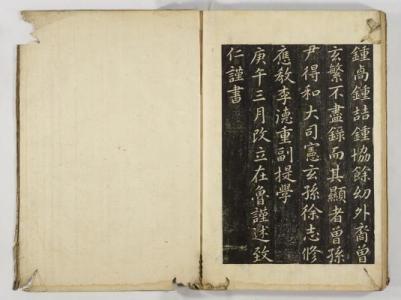 鍾卨鍾喆鍾協餘幼外裔曾
玄繁不盡錄而其顯者曾孫
尹得和大司憲玄孫徐志修
應敎李德重副提學
庚午三月改立在魯謹述致
仁謹書